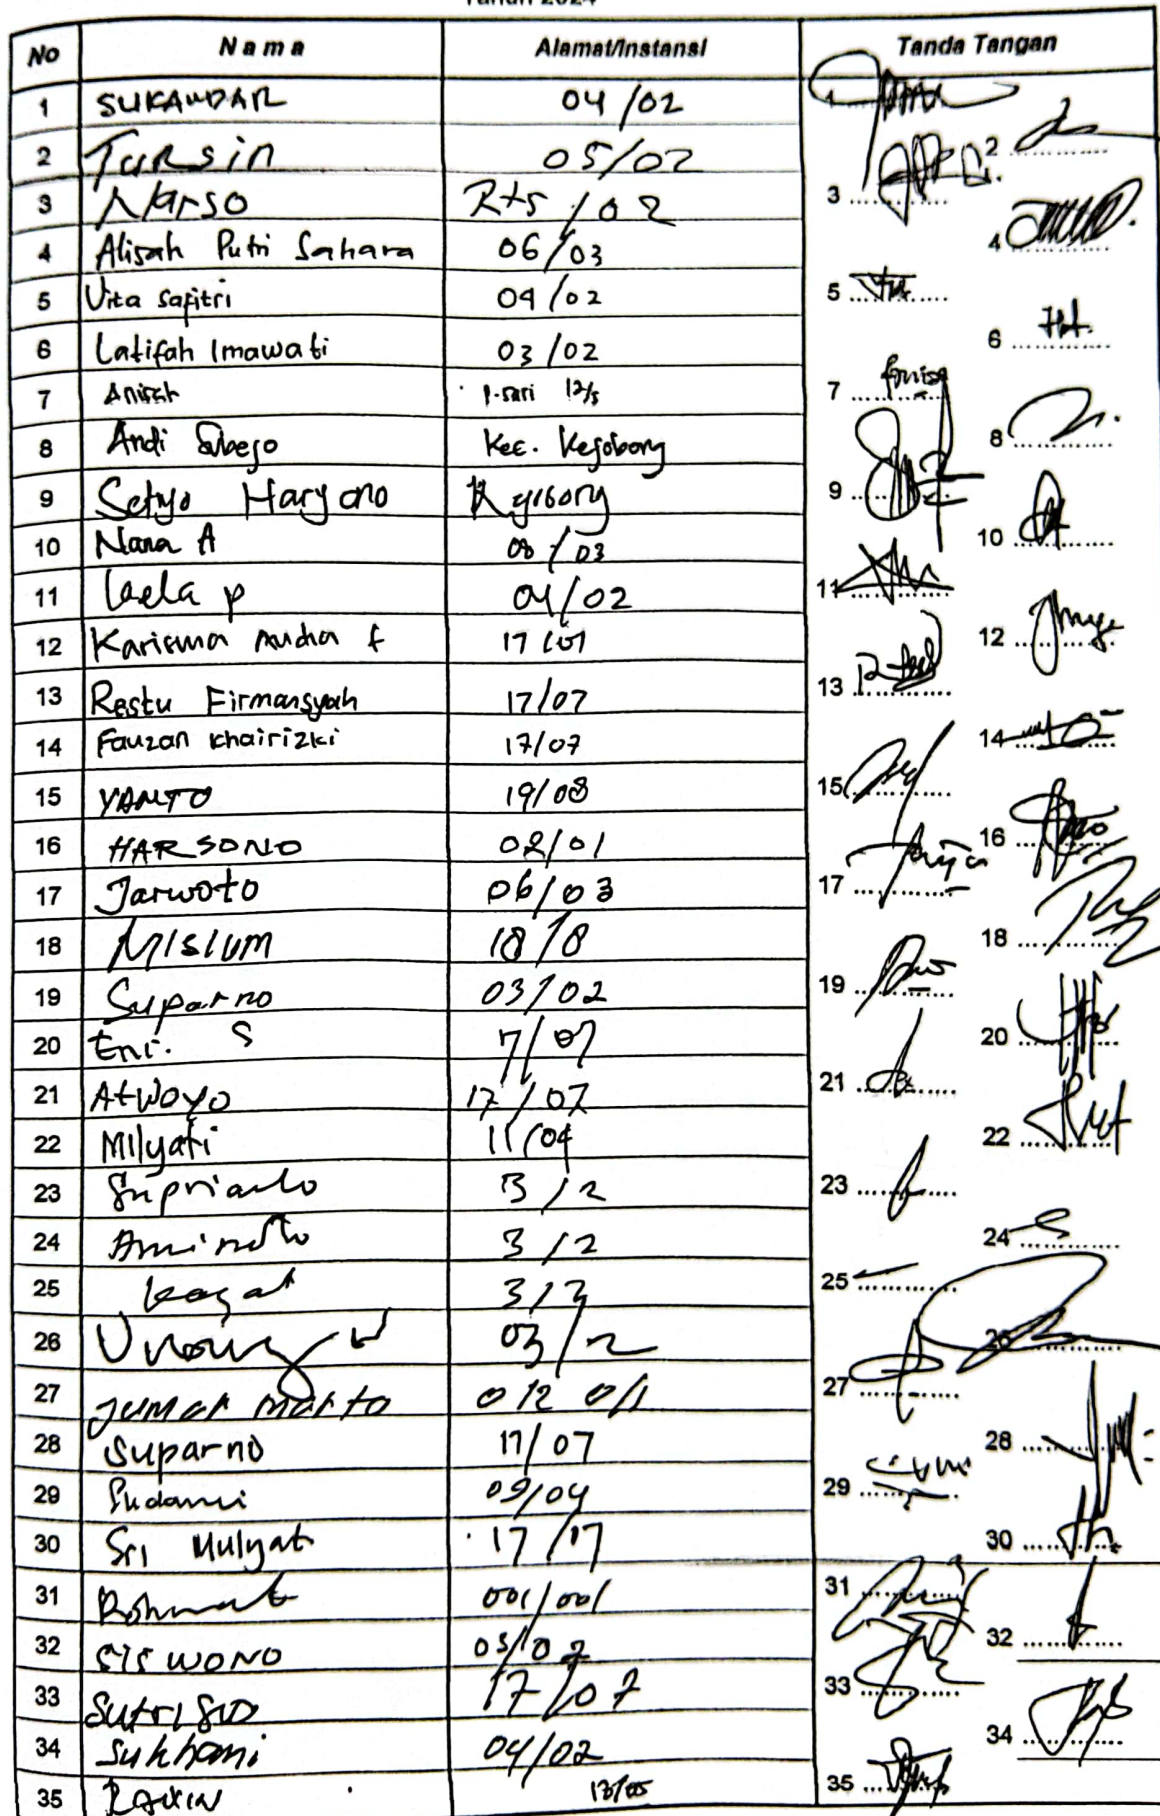 Tahun 2024
No Nama Alamat/Instansi Tanda Tangan
1 SUKANDAR 04/02 1
2 Tarsin 05/02 2
3 Narso Rt5/02 3
4 Alisah Putri Sahara 06/03 4
5 Vita Safitri 04/02 5
6 Latifah Imawati 03/02 6
7 Anisah P.sari 12/5 7
8 Andi Kec. Kejobong 8
9 Setyo Haryono 9
10 Nana A 08/03 10
11 Laela p 04/02 11
12 Karisma f 17/07 12
13 Restu Firmansyah 17/07 13
14 Fauzan khairizki 17/07 14
15 YANTO 19/08 15
16 HARSONO 02/01 16
17 Jarwoto 06/03 17
18 Misium 18/8 18
19 Suparno 03/02 19
20 Eni. S 7/07 20
21 Atwoyo 17/07 21
22 Milyati 11/04 22
23 Suprianto 3/2 23
24 3/2 24
25 3/2 25
26 03/2 26
27 Jumar marto 012 011 27
28 Suparno 17/07 28
29 09/04 29
30 Sri Mulyat 17/17 30
31 Rohmat 001/001 31
32 SISWONO 03/02 32
33 17/07 33
34 Sukhami 04/02 34
35 13/05 35